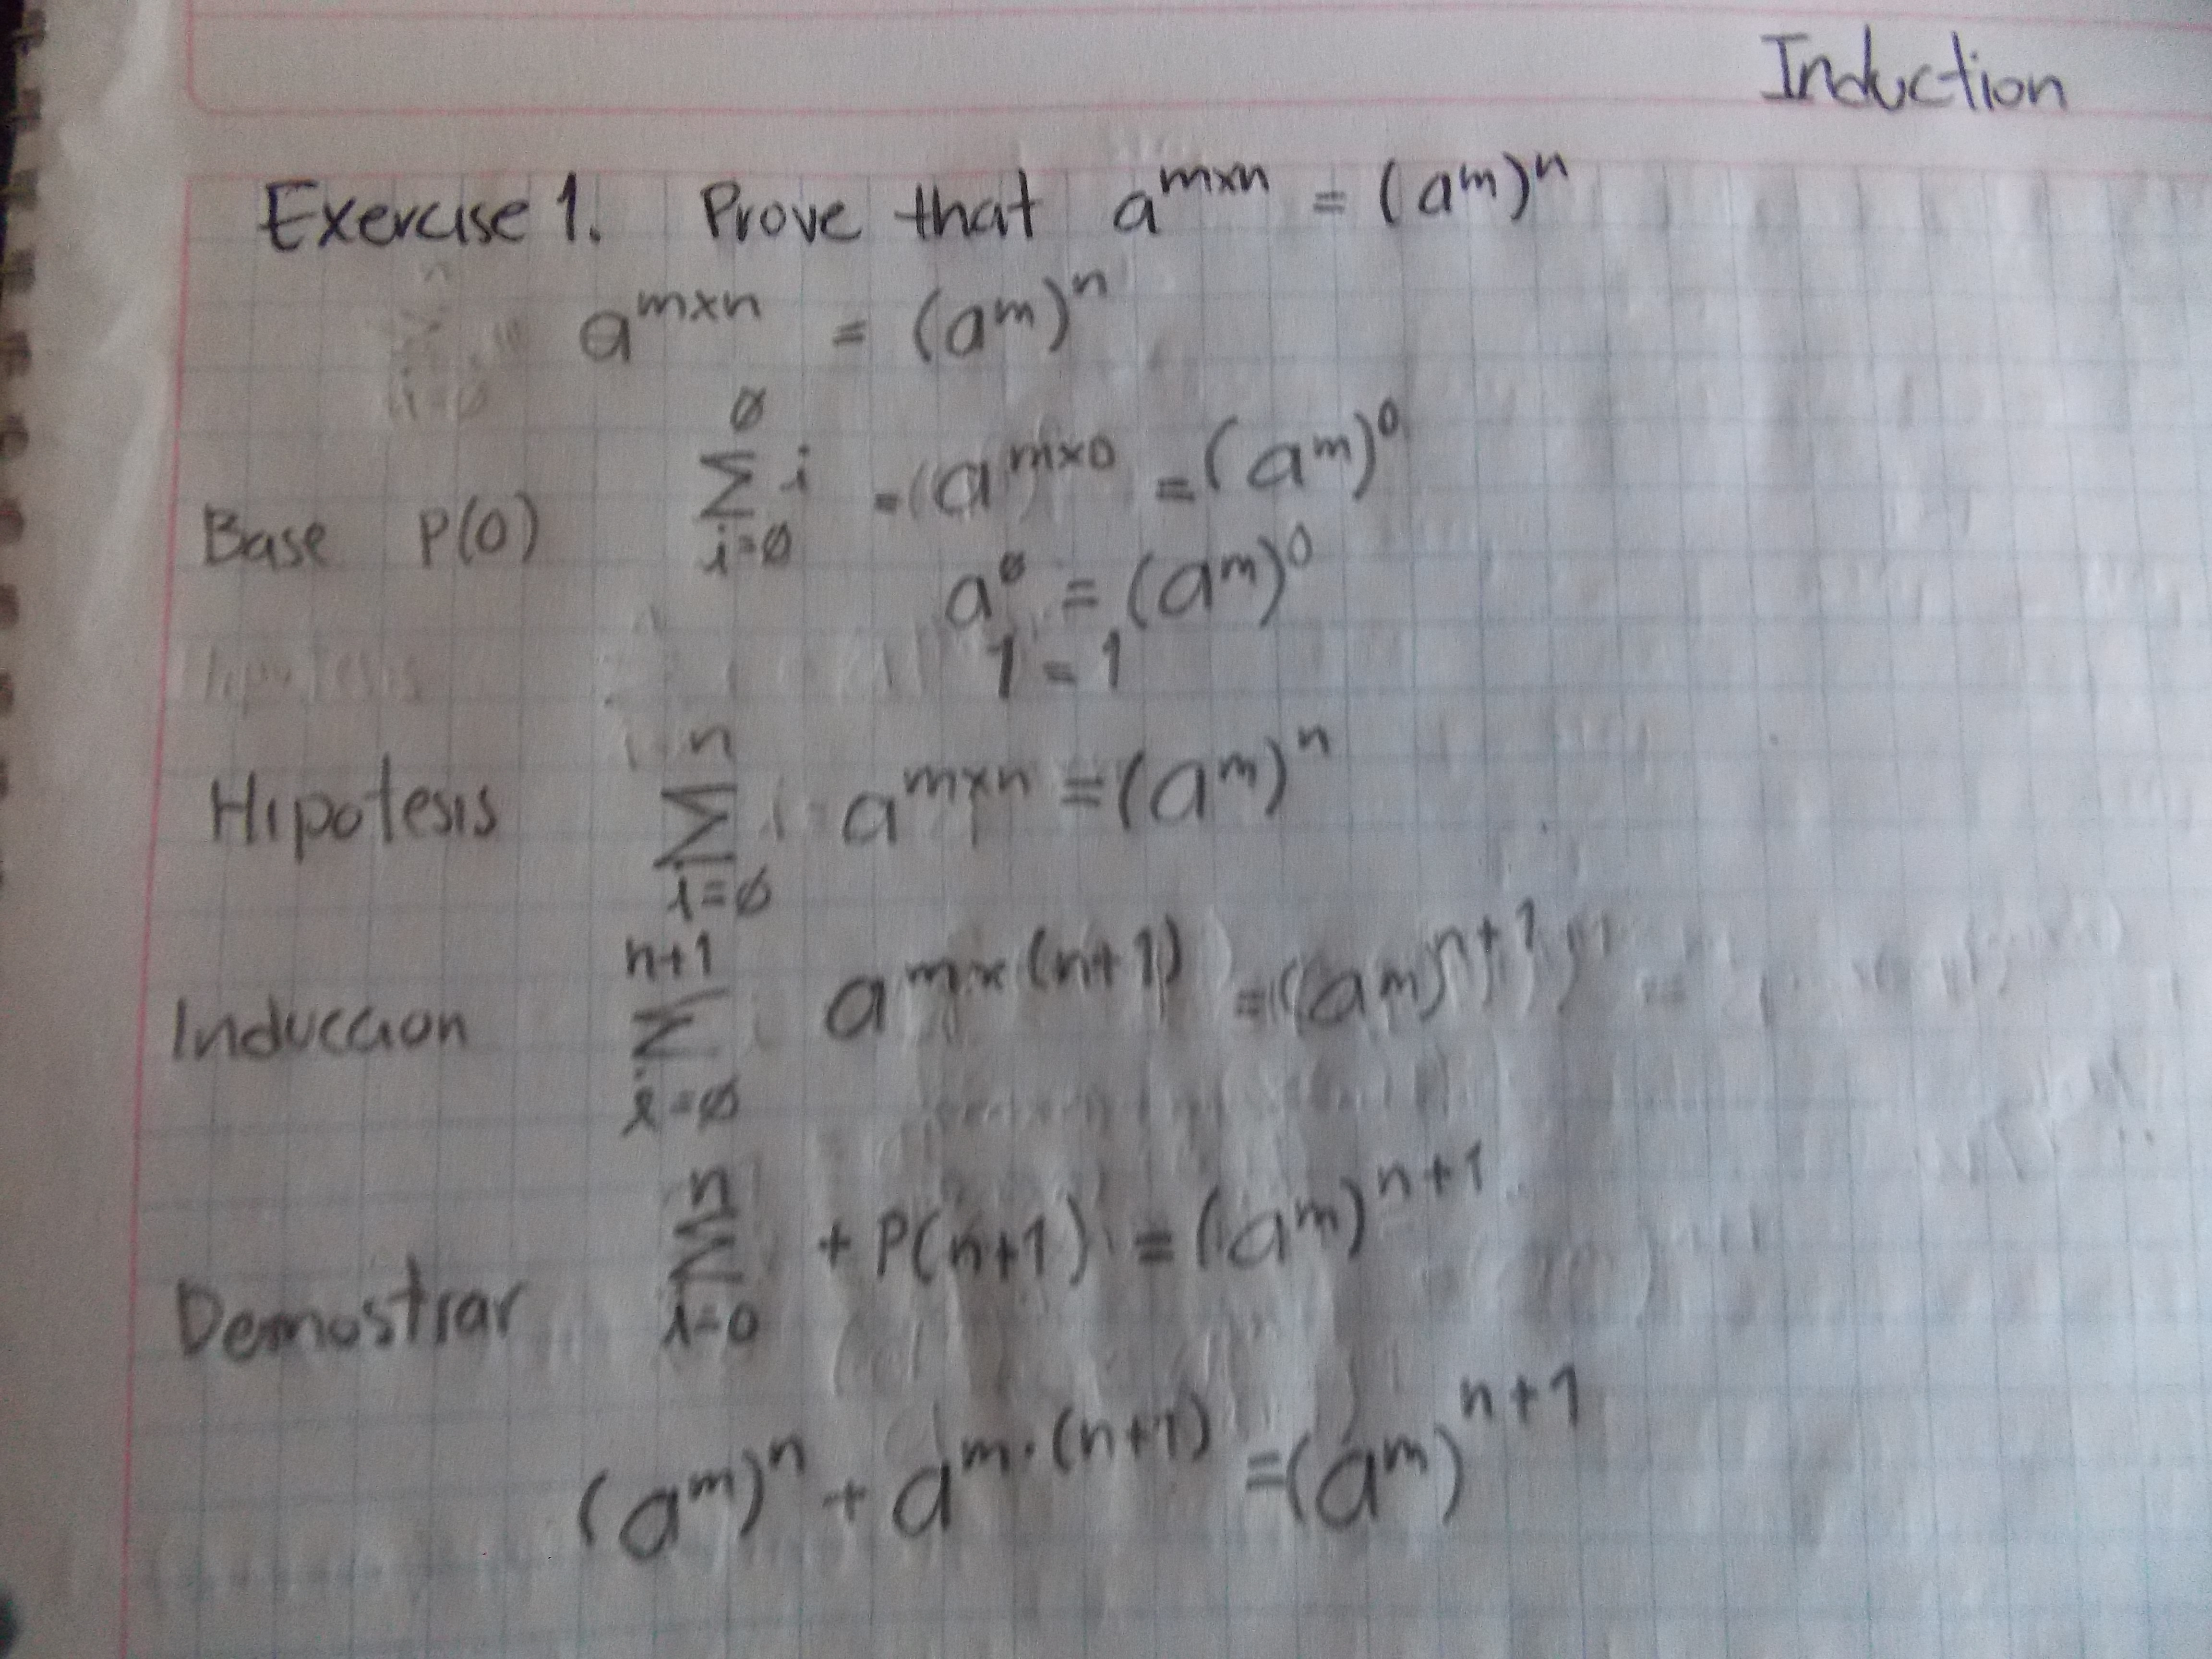 Induction
Exercise 1. Prove that a^{m×n} = (a^m)^n
a^{m×n} = (a^m)^n
Base P(0) ∑_{i=∅}^{∅} i = (a^{m×0} = (a^m)^0
a^∅ = (a^m)^0
1 = 1
Hipotesis ∑_{i=∅}^{n} a^{m×n} = (a^m)^n
Induccion ∑_{i=∅}^{n+1} a^{m×(n+1)} = (a^m)^{n+1}
Demostrar ∑_{i=0}^{n} + P(n+1) = (a^m)^{n+1}
(a^m)^n + a^{m·(n+1)} = (a^m)^{n+1}